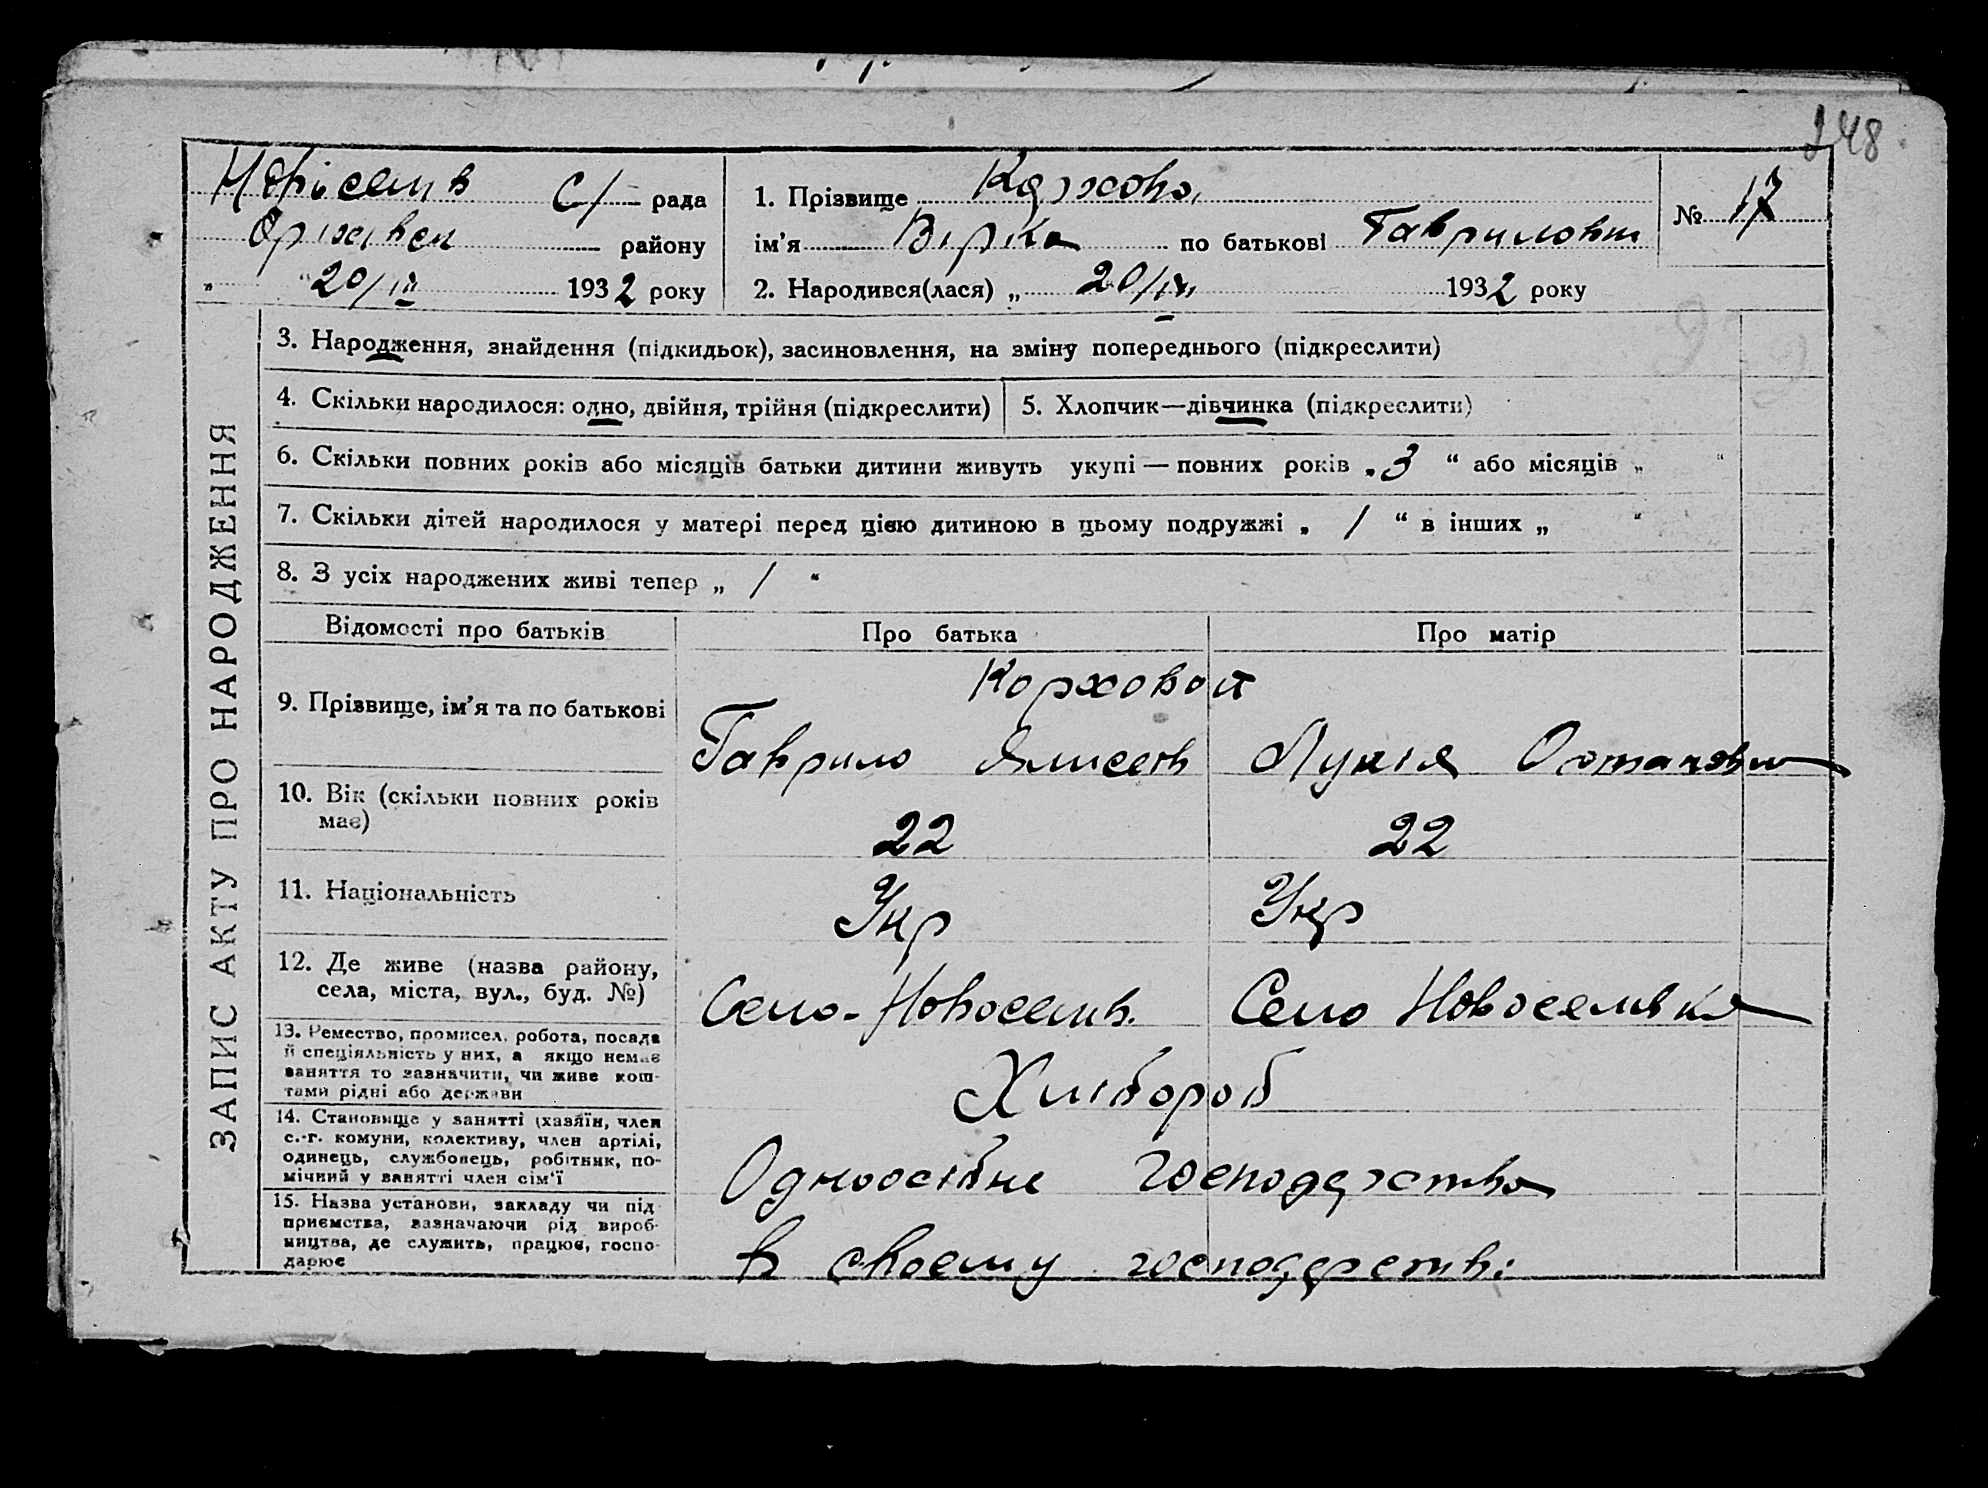 248
С/ рада
1. Прізвище Коржова
№ 17
Оржівск району
ім'я Вірка по батькові Гавриловн
„ 20/IV 1932 року
2. Народився(лася) „ 20/IV 1932 року
ЗАПИС АКТУ ПРО НАРОДЖЕННЯ
3. Народження, знайдення (підкидьок), засиновлення, на зміну попереднього (підкреслити)
4. Скільки народилося: одно, двійня, трійня (підкреслити)
5. Хлопчик—дівчинка (підкреслити)
6. Скільки повних років або місяців батьки дитини живуть укупі — повних років „ 3 “ або місяців „ “
7. Скільки дітей народилося у матері перед цією дитиною в цьому подружжі „ / “ в інших „ “
8. З усіх народжених живі тепер „ / “
Відомості про батьків
Про батька
Про матір
9. Прізвище, ім'я та по батькові
Коржовой
Гаврило Ялисеєв
Лукія Остаповн
10. Вік (скільки повних років
має)
22
22
11. Національність
Укр
Укр
12. Де живе (назва району,
села, міста, вул., буд. №)
Село-Новоселів.
Село Новоселівка
13. Ремество, промисел, робота, посада
й спеціяльність у них, а якщо немає
заняття то зазначити, чи живе кош-
тами рідні або держави
Хлібороб
14. Становище у занятті (хазяїн, член
с.-г. комуни, колективу, член артілі,
одинець, службовець, робітник, по-
мічний у занятті член сім'ї
Одноосібне господарство
15. Назва установи, закладу чи під
приємства, зазначаючи рід вироб-
ництва, де служить, працює, госпо-
дарює
в своєму господарстві